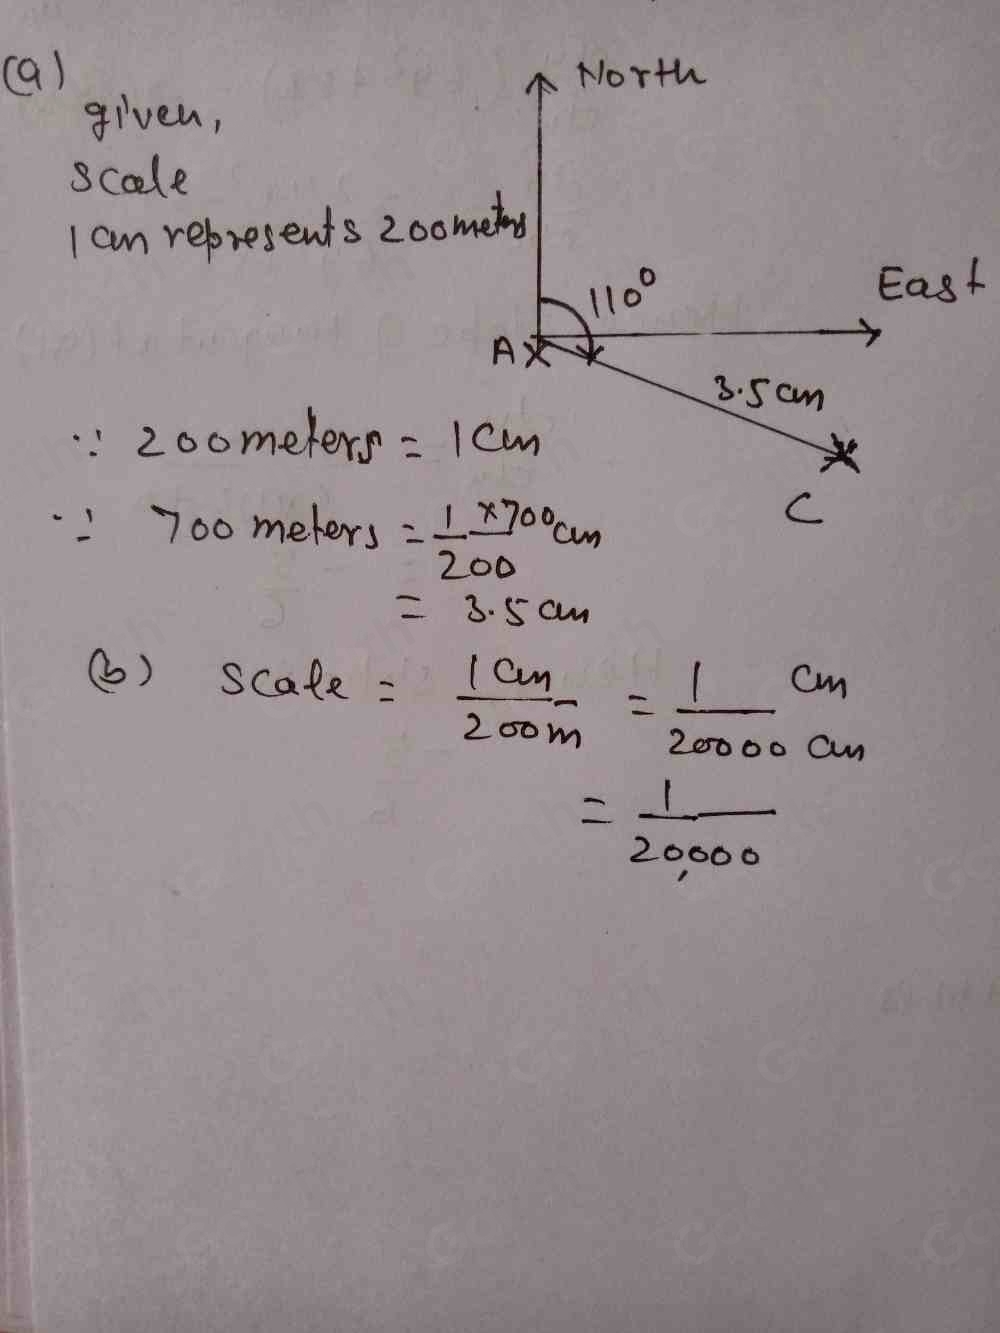 (a)
North
given,
scale
1 cm represents 200 meters
110°
East
A
3.5 cm
∵ 200 meters = 1 cm
C
∵ 700 meters = 1 × 700 cm
200
= 3.5 cm
(b) Scale = 1 cm / 200 m = 1 cm / 20000 cm
= 1 / 20,000